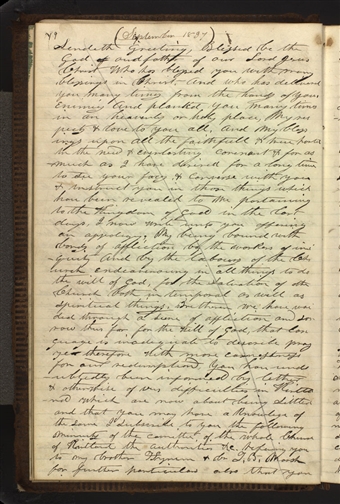 (September 1837)
Sendeth Greeting, Blessed be the
God and father of our Lord Jesus
Christ Who has blessed you with many
blessings in Christ And who has delivered
you many times from the hands of your
Enemies And planted you many times
in an heavenly or holy place, My res
pects & love to you all, and my bless
ings upon all the faithfull & true hearted
in the new & everlasting Covenant & for as
much as I have desired for a long time
to see your faces & converse with you
& instruct you in those things which
have been revealed to me pertaining
to the Kingdom of God in the last
days, I now write unto you offering
an apology, My being bound with
bonds of affliction by the workers of ini
quity And by the labours of the Ch
urch endeavouring in all things to do
the will of God, for the salvation of the
Church both in temporal as well as
spiritual things. Brethren we have wa
ded through a scene of affliction and sor
row thus far for the will of God, that lan
guage is inadequate to describe pray
ye therefore with more earnestness
for our redemption, You have und
oubtedly been informed by letter
& otherwise of our difficulties in Kirtland
which are now about being settled
and that you may have a knowledge of
the same I subscribe to you the following
minutes of the committee, of the whole Church
of Kirtland the authorities &c. refering you
to my brother Hyrum & Br T. B. Marsh
for further particulars also that you